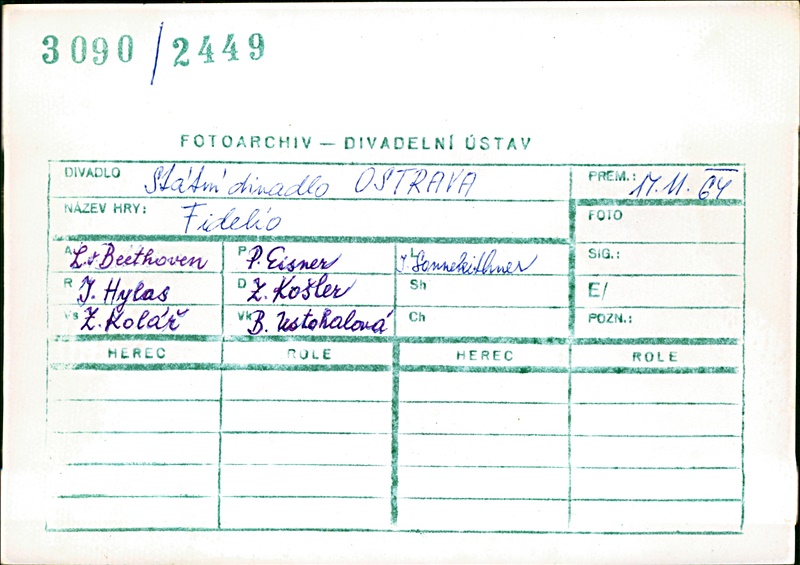 3090 / 2449
FOTOARCHIV — DIVADELNÍ ÚSTAV
DIVADLO Státní divadlo OSTRAVA PREM.: 17.11.64
NÁZEV HRY: Fidelio FOTO
A L.v Beethoven P P. Eisner L J. Sonnekithner SIG.:
R J. Hylas D Z. Košler Sh E/
Vs Z. Kolář Vk B. Ustohalová Ch POZN.:
HEREC ROLE HEREC ROLE